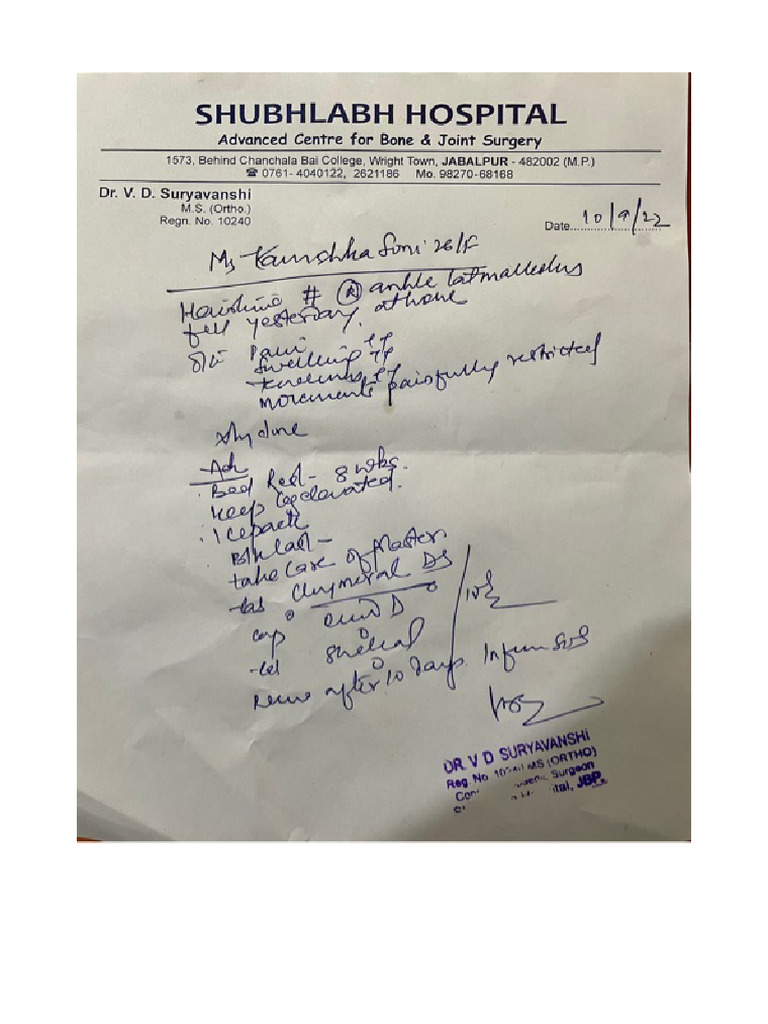 SHUBHLABH HOSPITAL
Advanced Centre for Bone & Joint Surgery
1573, Behind Chanchala Bai College, Wright Town, JABALPUR - 482002 (M.P.)
☎ 0761- 4040122, 2621186 Mo. 98270-68168
Dr. V. D. Suryavanshi
M.S. (Ortho.)
Regn. No. 10240
Date 10/9/22
Ms Soni 26/F
Hairline # (R) ankle lat malleolus
fell yesterday at home
Pain
Swelling
movements painfully restricted
Adv
Bed Rest - 8 wks.
keep leg elevated.
Icepack
take care of Plaster.
tab Chymoral DS
cap D
tab Shelcal
10
after 10 days Inform SOS
DR. V D SURYAVANSHI
Reg. No. MS (ORTHO)
Surgeon
JBP.